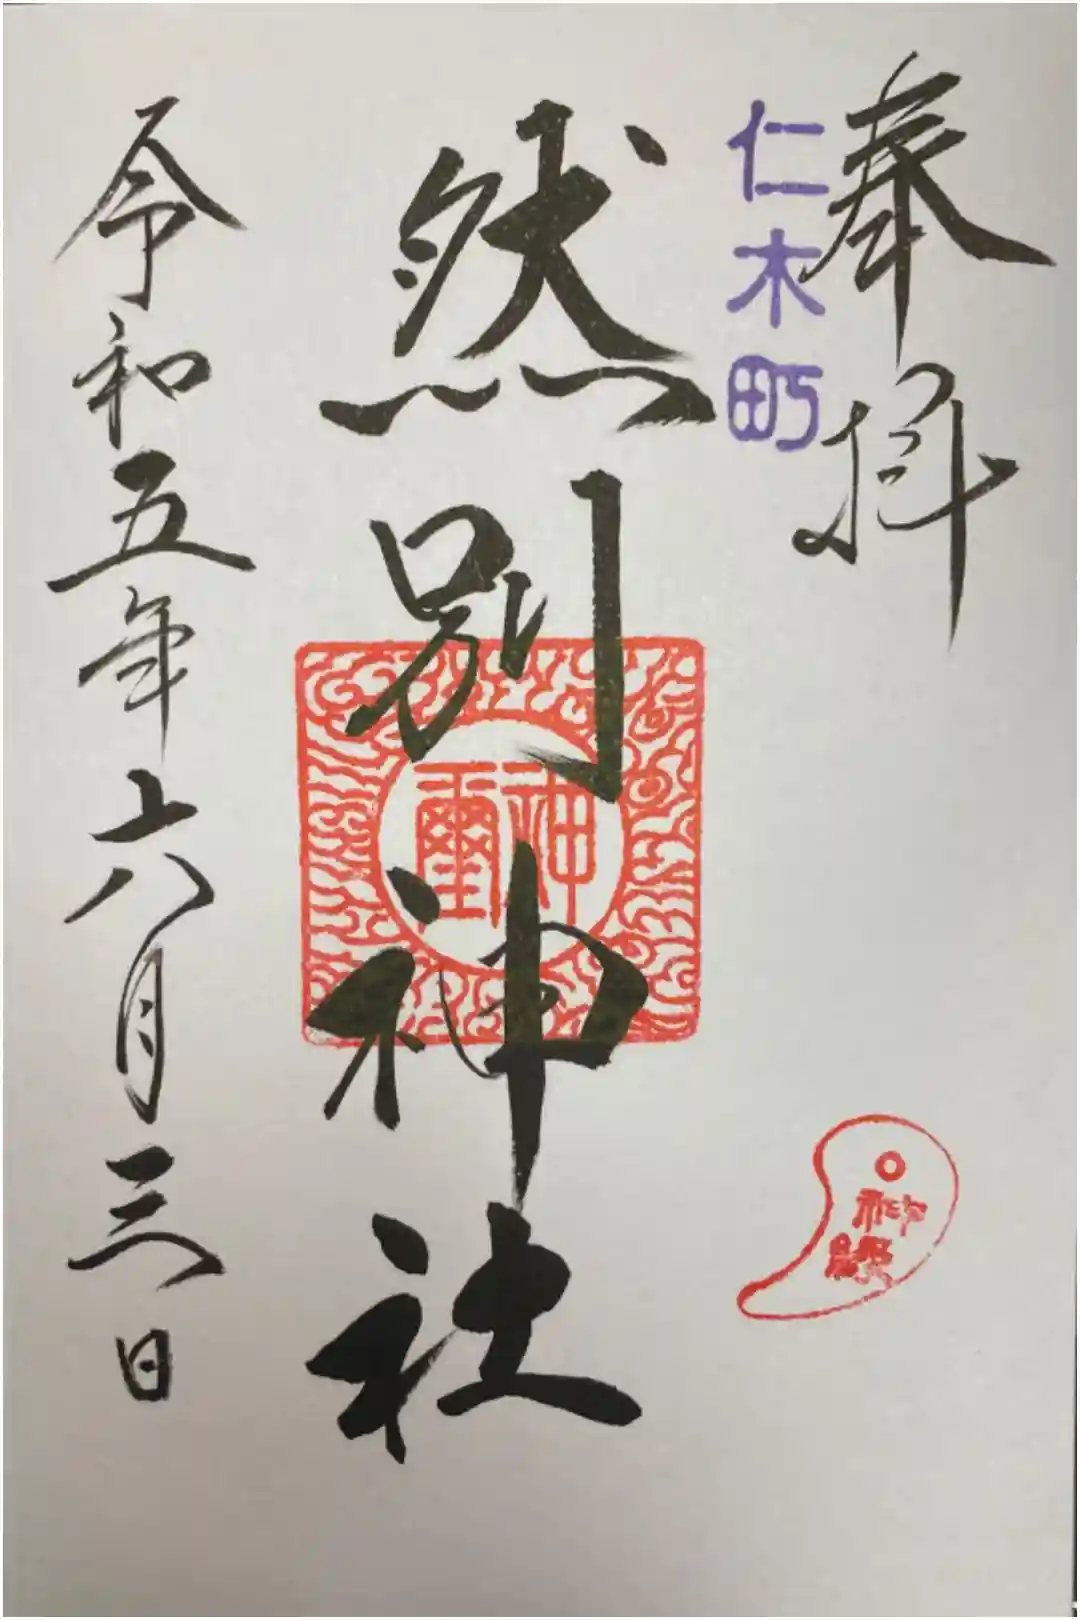 奉拝
仁木町
然別神社
神璽
神縁
令和五年六月三日